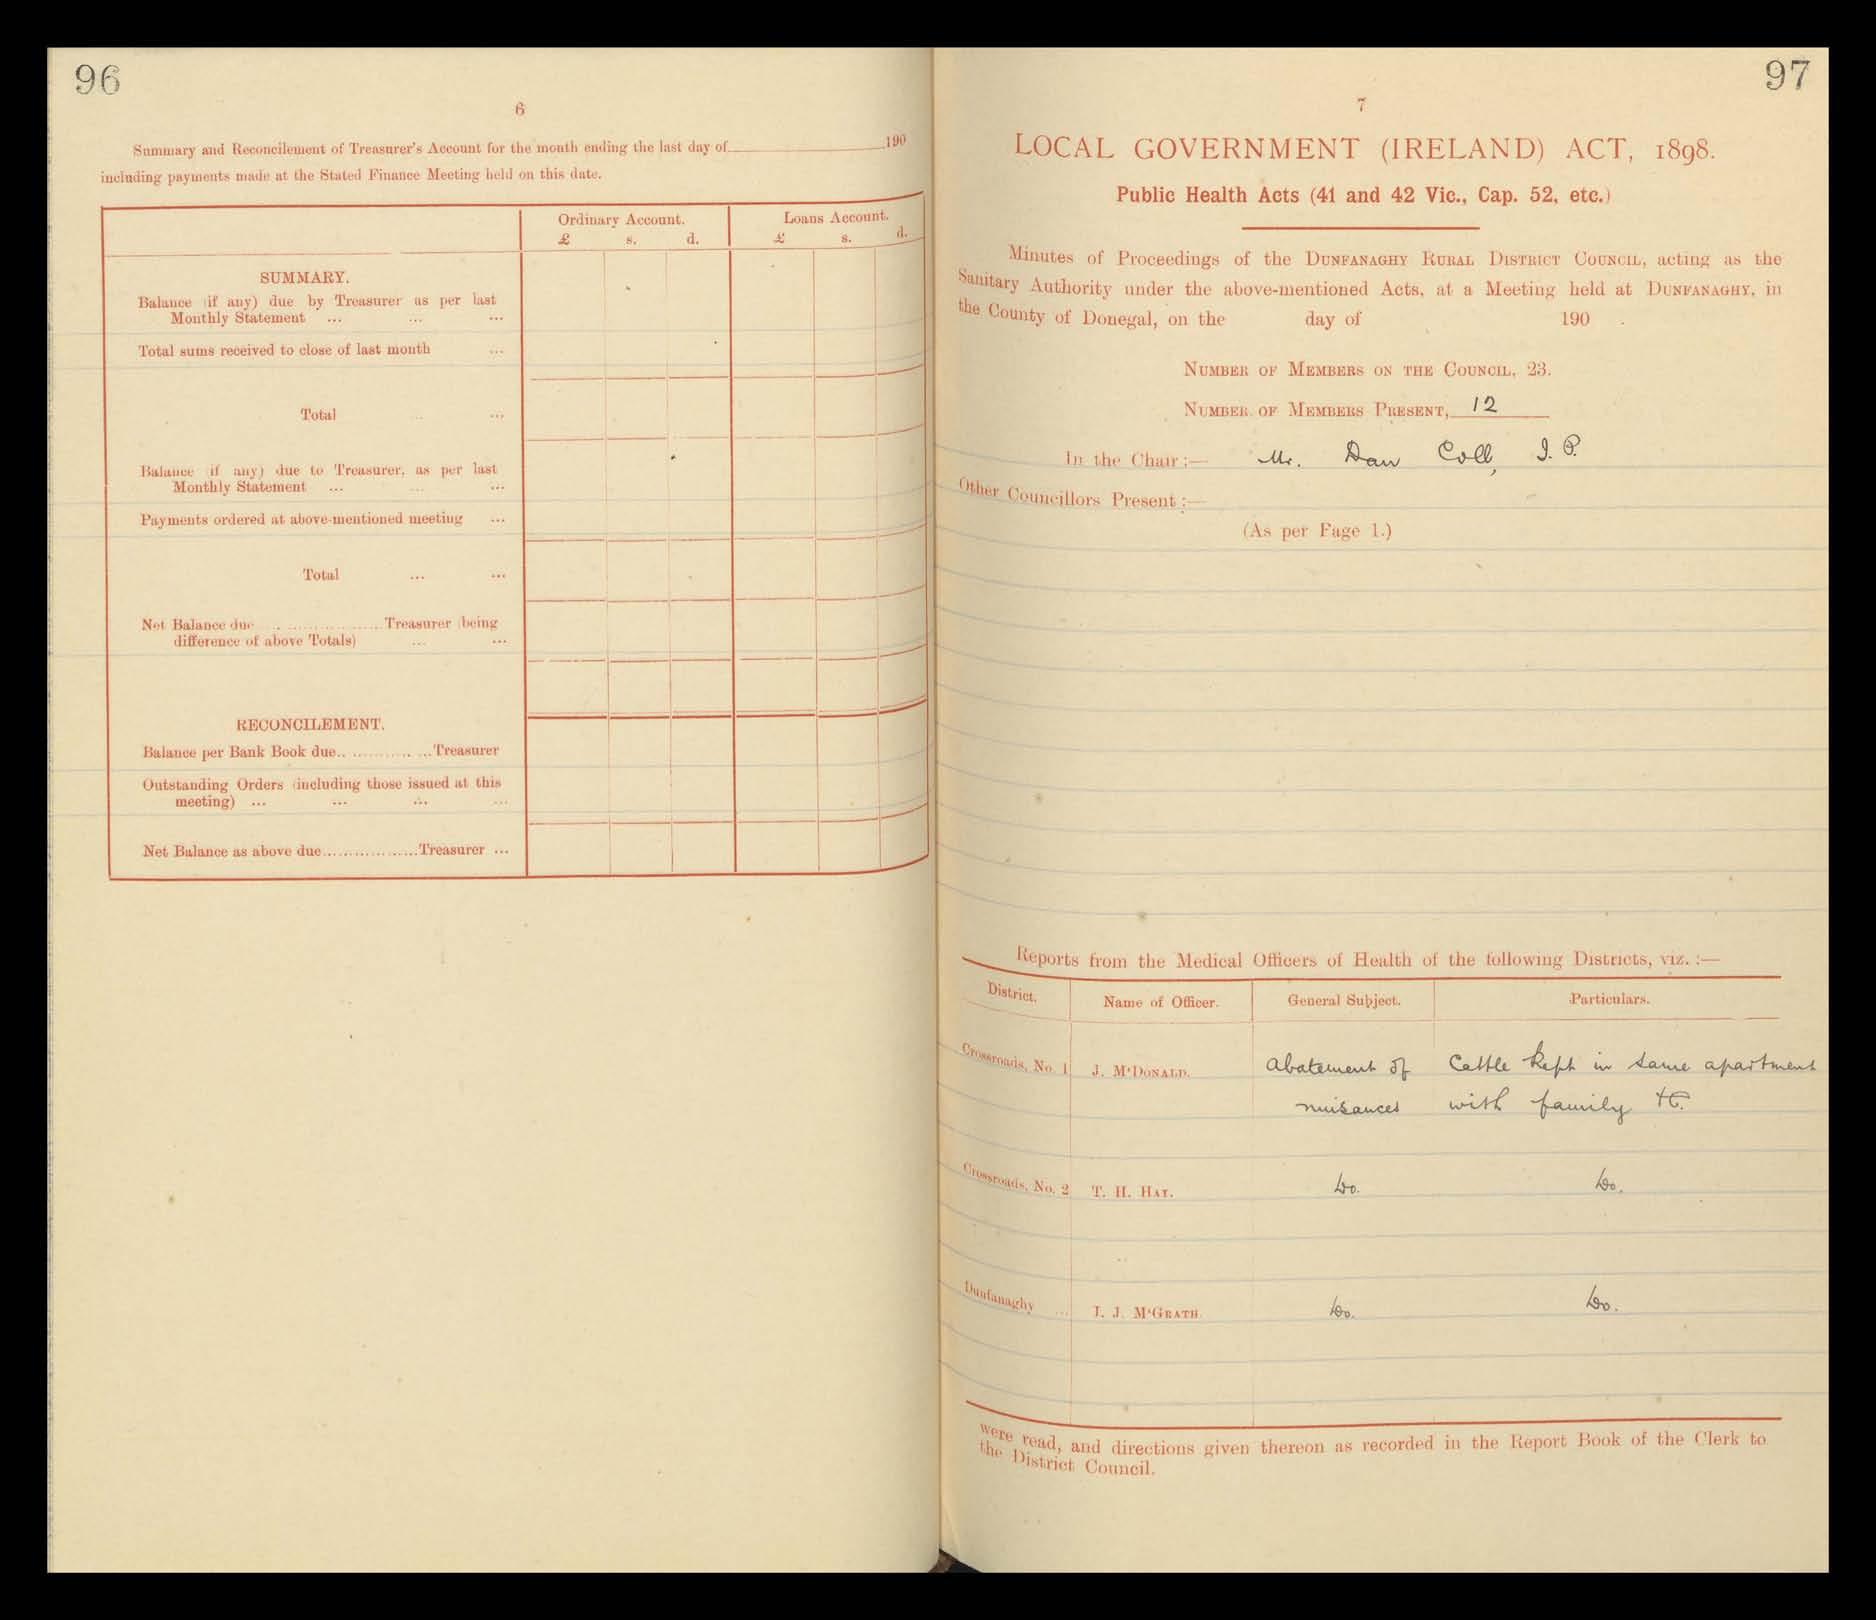 96
6
Summary and Reconcilement of Treasurer's Account for the month ending the last day of 190
including payments made at the Stated Finance Meeting held on this date.
Ordinary Account. Loans Account.
£ s. d. £ s. d.
SUMMARY.
Balance (if any) due by Treasurer as per last
Monthly Statement ... ... ...
Total sums received to close of last month ...
Total ... ...
Balance (if any) due to Treasurer, as per last
Monthly Statement ... ... ...
Payments ordered at above-mentioned meeting ...
Total ... ...
Net Balance due ..................... Treasurer (being
difference of above Totals) ... ...
RECONCILEMENT.
Balance per Bank Book due.................Treasurer
Outstanding Orders (including those issued at this
meeting) ... ... ... ...
Net Balance as above due...................Treasurer ...
97
7
LOCAL GOVERNMENT (IRELAND) ACT, 1898.
Public Health Acts (41 and 42 Vic., Cap. 52, etc.)
Minutes of Proceedings of the Dunfanaghy Rural District Council, acting as the
Sanitary Authority under the above-mentioned Acts, at a Meeting held at Dunfanaghy, in
the County of Donegal, on the day of 190 .
Number of Members on the Council, 23.
Number of Members Present, 12
In the Chair :— Mr. Dan Coll, J. P.
Other Councillors Present :—
(As per Page 1.)
Reports from the Medical Officers of Health of the following Districts, viz. :—
District. Name of Officer. General Subject. Particulars.
Crossroads, No. 1 J. M'Donald. Abatement of Cattle kept in same apartment
nuisances with family &c.
Crossroads, No. 2 T. H. Hay. Do. Do.
Dunfanaghy ... J. J. M'Grath. Do. Do.
were read, and directions given thereon as recorded in the Report Book of the Clerk to
the District Council.